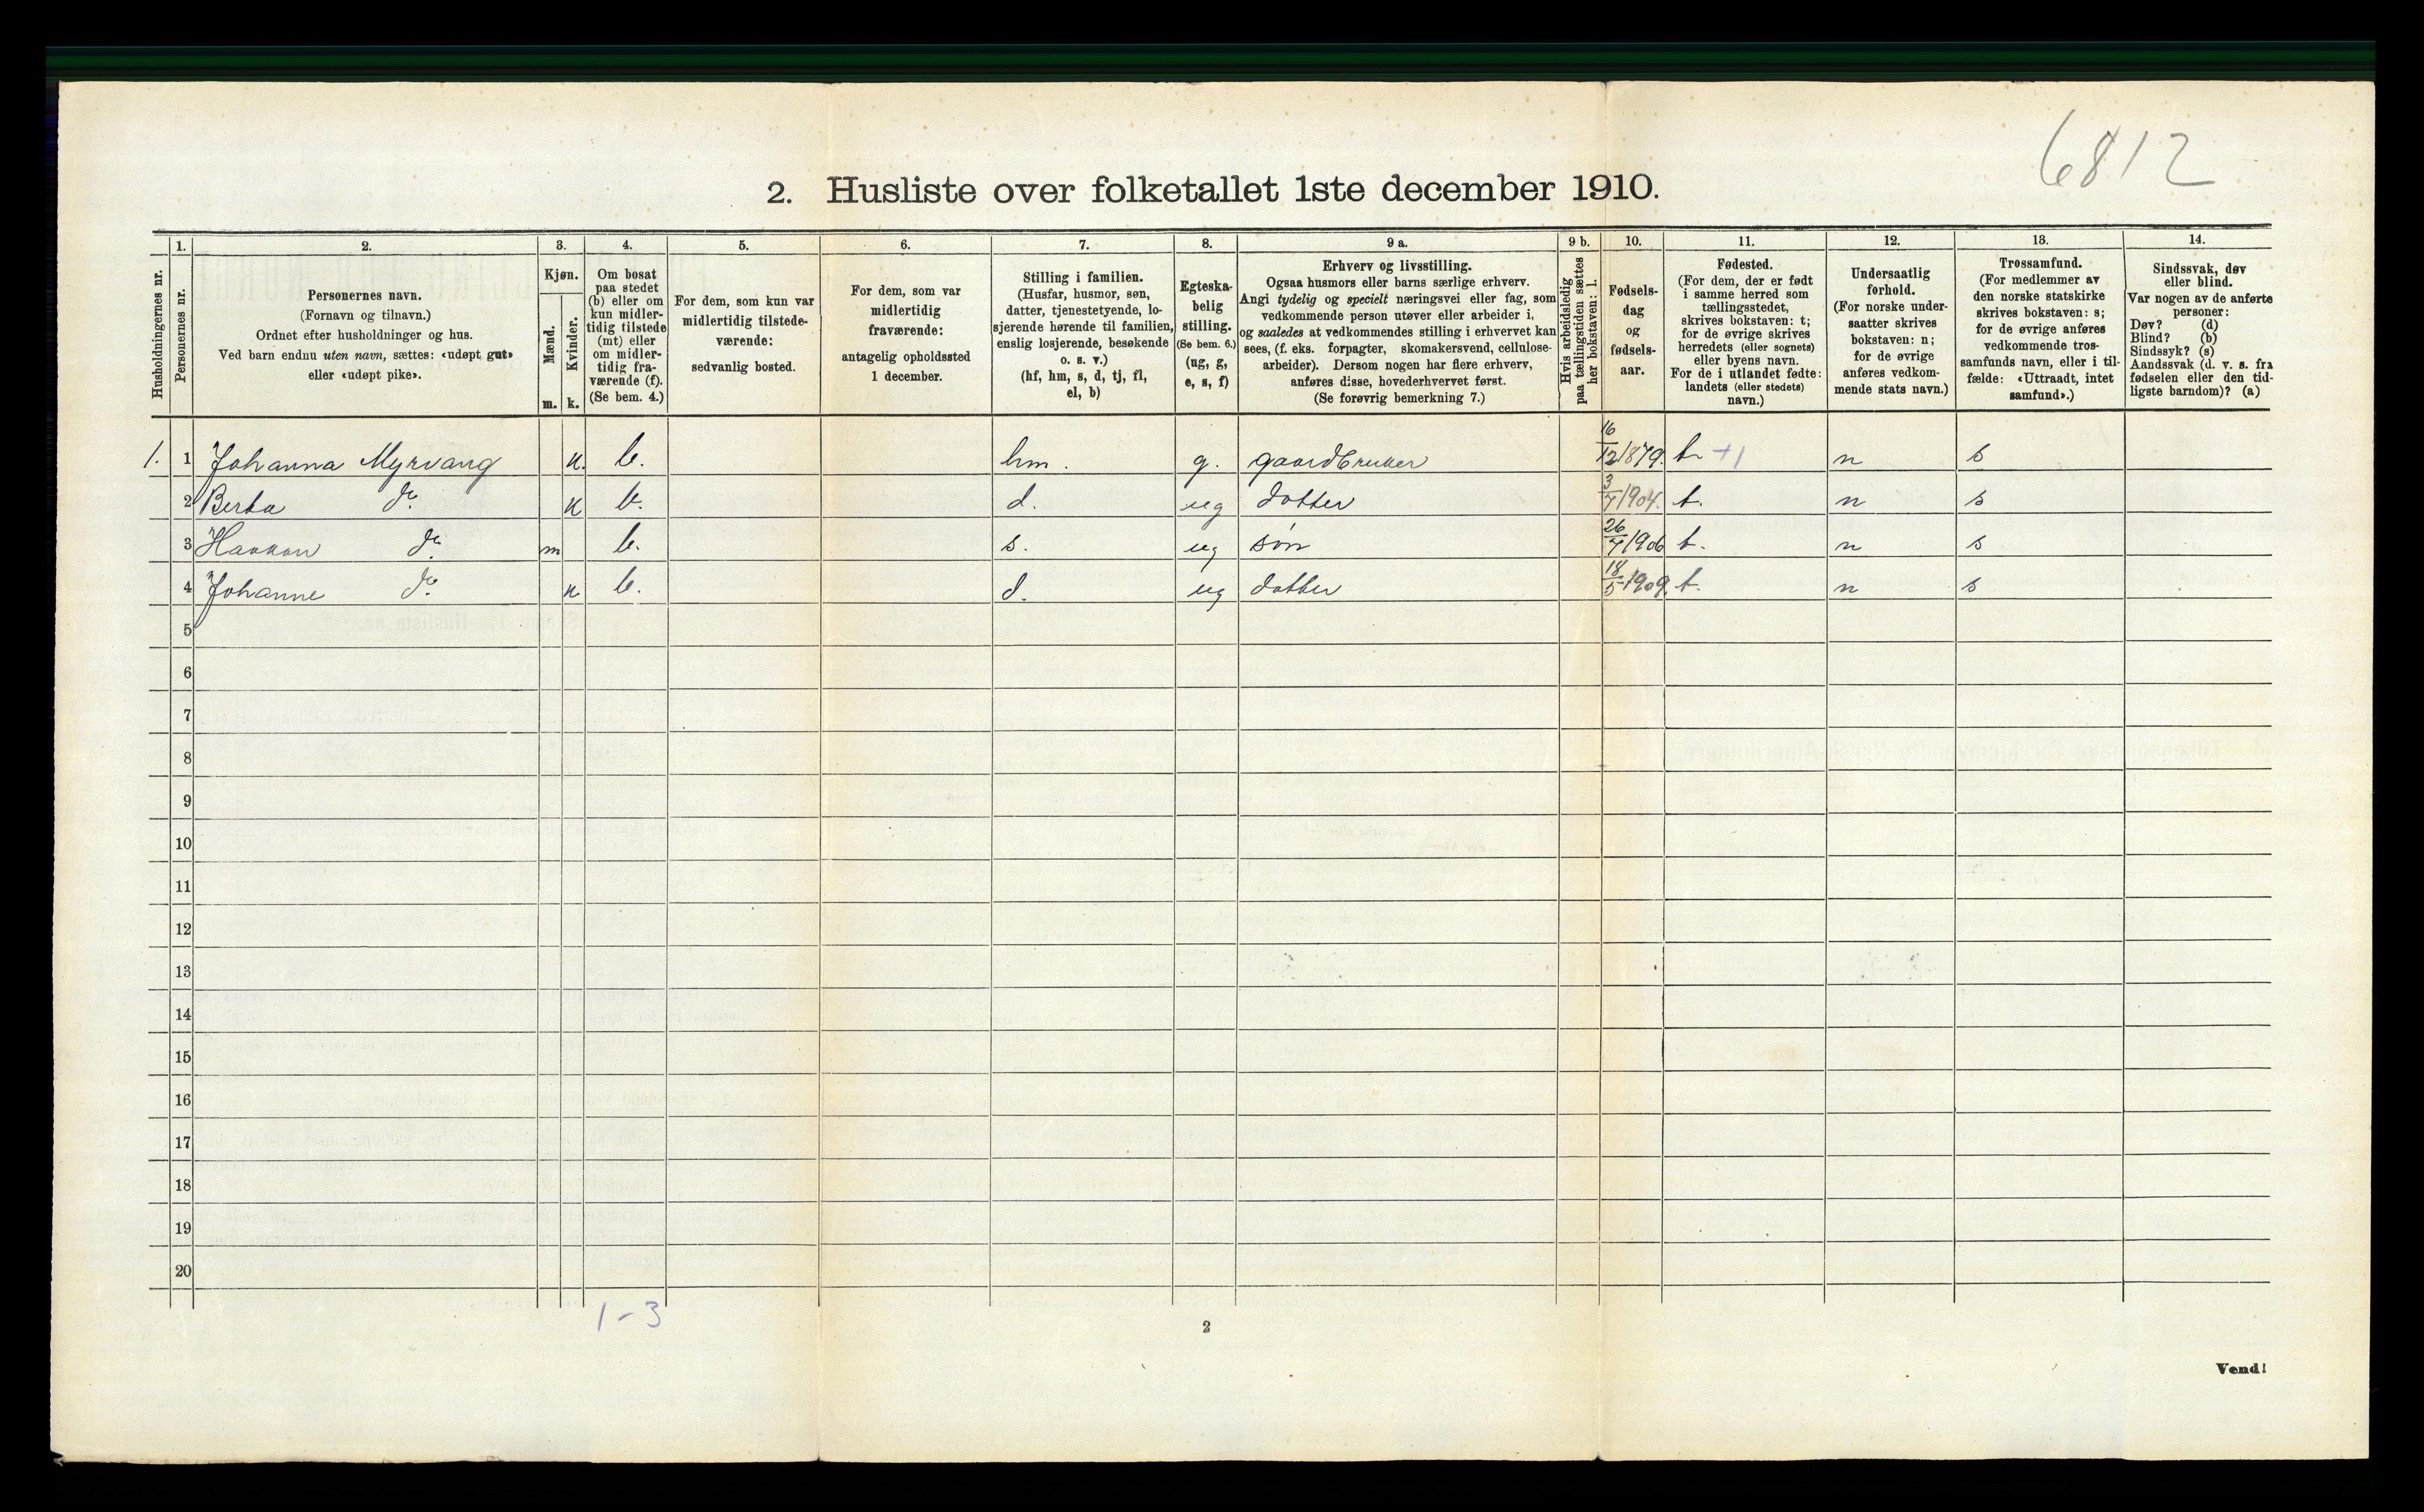 6812
2. Husliste over folketallet 1ste december 1910.
Husholdningernes nr.
1.
Personernes nr.
2.
Personernes navn.
(Fornavn og tilnavn.)
Ordnet efter husholdninger og hus.
Ved barn endnu uten navn, sættes: «udøpt gut»
eller «udøpt pike».
3.
Kjøn.
Mænd.
m.
Kvinder.
k.
4.
Om bosat
paa stedet
(b) eller om
kun midler-
tidig tilstede
(mt) eller
om midler-
tidig fra-
værende (f).
(Se bem. 4.)
5.
For dem, som kun var
midlertidig tilstede-
værende:
sedvanlig bosted.
6.
For dem, som var
midlertidig
fraværende:
antagelig opholdssted
1 december.
7.
Stilling i familien.
(Husfar, husmor, søn,
datter, tjenestetyende, lo-
sjerende hørende til familien,
enslig losjerende, besøkende
o. s. v.)
(hf, hm, s, d, tj, fl,
el, b)
8.
Egteska-
belig
stilling.
(Se bem. 6.)
(ug, g,
e, s, f)
9 a.
Erhverv og livsstilling.
Ogsaa husmors eller barns særlige erhverv.
Angi tydelig og specielt næringsvei eller fag, som
vedkommende person utøver eller arbeider i,
og saaledes at vedkommendes stilling i erhvervet kan
sees, (f. eks. forpagter, skomakersvend, cellulose-
arbeider). Dersom nogen har flere erhverv,
anføres disse, hovederhvervet først.
(Se forøvrig bemerkning 7.)
9 b.
Hvis arbeidsledig
paa tællingstiden sættes
her bokstaven: l.
10.
Fødsels-
dag
og
fødsels-
aar.
11.
Fødested.
(For dem, der er født
i samme herred som
tællingsstedet,
skrives bokstaven: t;
for de øvrige skrives
herredets (eller sognets)
eller byens navn.
For de i utlandet fødte:
landets (eller stedets)
navn.)
12.
Undersaatlig
forhold.
(For norske under-
saatter skrives
bokstaven: n;
for de øvrige
anføres vedkom-
mende stats navn.)
13.
Trossamfund.
(For medlemmer av
den norske statskirke
skrives bokstaven: s;
for de øvrige anføres
vedkommende tros-
samfunds navn, eller i til-
fælde: «Uttraadt, intet
samfund».)
14.
Sindssvak, døv
eller blind.
Var nogen av de anførte
personer:
Døv? (d)
Blind? (b)
Sindssyk? (s)
Aandssvak (d. v. s. fra
fødselen eller den tid-
ligste barndom)? (a)
1. 1 Johanna Myrvang k. b. hm. g. gaardbruker 16/12 1879. t. +1 n s
2 Berta do. k b. d. ug dotter 3/7 1904. t. n s
3 Haakon do. m b. s. ug søn 26/7 1906 t. n s
4 Johanne do. k b. d. ug dotter 18/5 1909. t. n s
5
6
7
8
9
10
11
12
13
14
15
16
17
18
19
20
1-3
2
Vend!